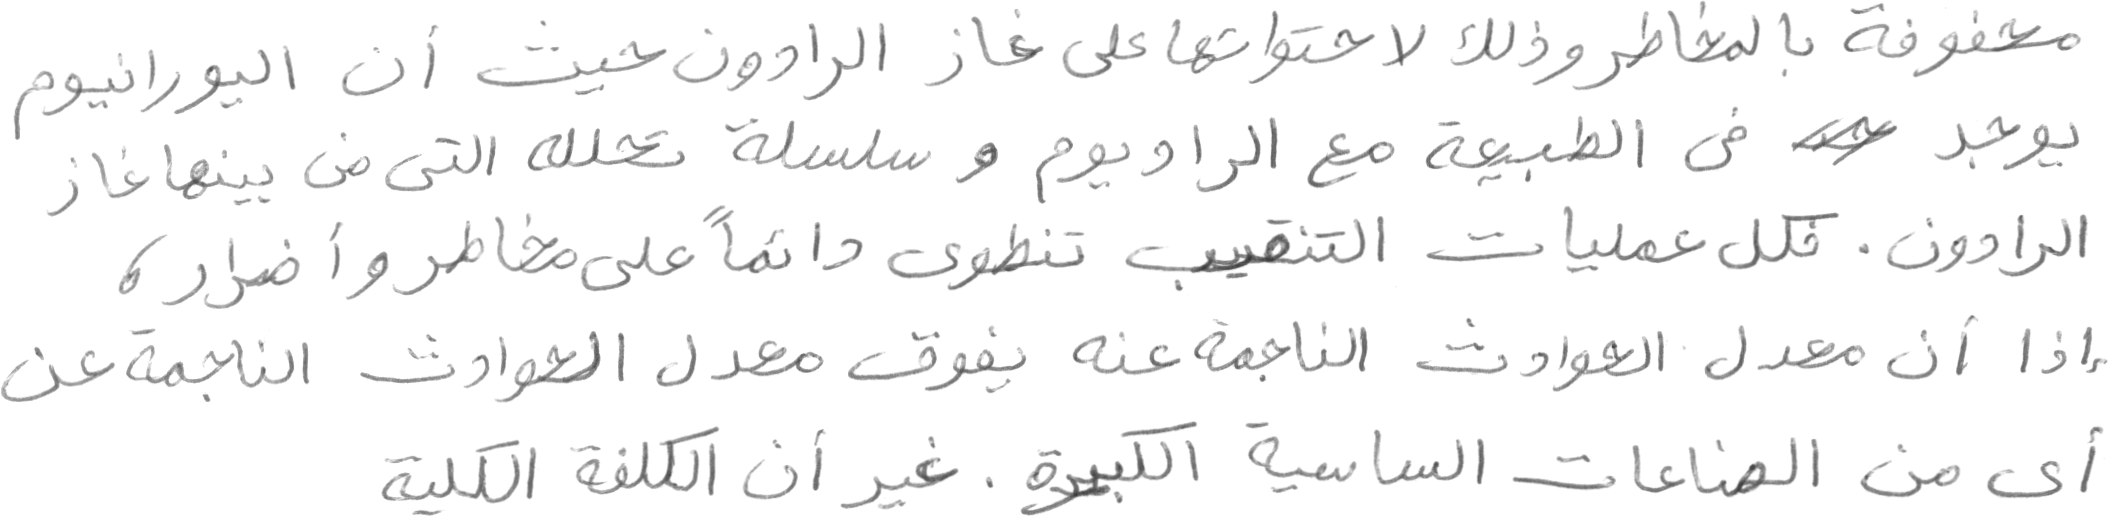 محفوفة بالمخاطر وذلك لاحتوائها على غاز الرادون حيث أن اليورانيوم
يوجد فى الطبيعة مع الراديوم و سلسلة تحلله التى من بينها غاز
الرادون . فكل عمليات التنقيب تنطوى دائماً على مخاطر وأضرار ،
إذا أن معدل الحوادث الناجمة عنه يفوق معدل الحوادث الناجمة عن
أى من الصناعات الساسية الكبيرة . غير أن الكلفة الكلية